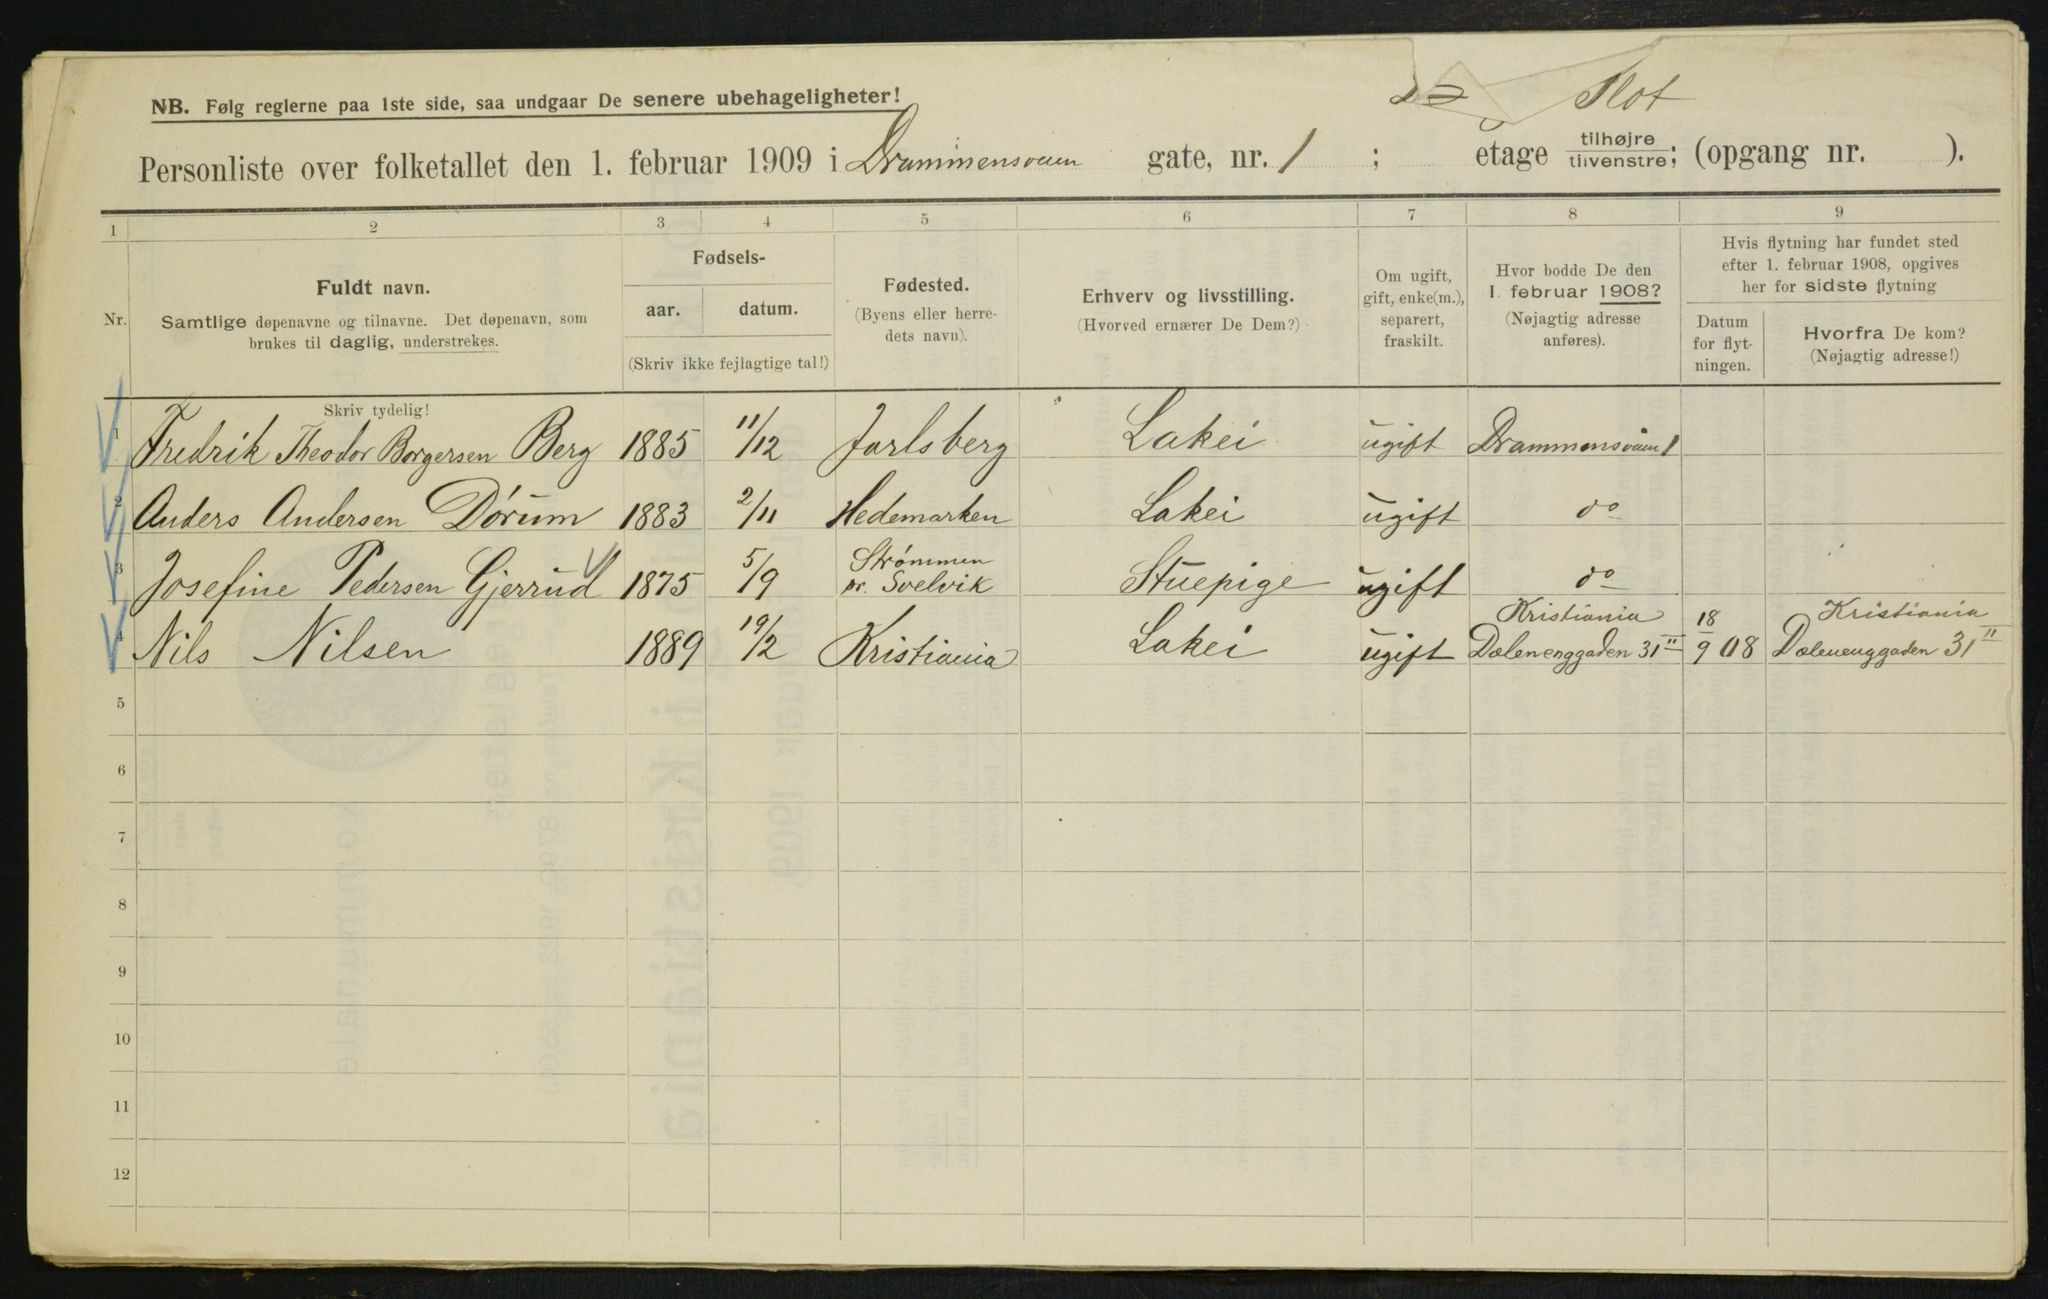 NB. Følg reglerne paa 1ste side, saa undgaar De senere ubehageligheter!
Slot
Personliste over folketallet den 1. februar 1909 i Drammensveien gate, nr. 1 ; etage tilhøjre tilvenstre; (opgang nr. ).
1 2 3 4 5 6 7 8 9
Nr.
Fuldt navn.
Samtlige døpenavne og tilnavne. Det døpenavn, som
brukes til daglig, understrekes.
Skriv tydelig!
Fødsels-
aar. datum.
(Skriv ikke fejlagtige tal!)
Fødested.
(Byens eller herre-
dets navn).
Erhverv og livsstilling.
(Hvorved ernærer De Dem?)
Om ugift,
gift, enke(m.),
separert,
fraskilt.
Hvor bodde De den
1. februar 1908?
(Nøjagtig adresse
anføres).
Hvis flytning har fundet sted
efter 1. februar 1908, opgives
her for sidste flytning
Datum
for flyt-
ningen.
Hvorfra De kom?
(Nøjagtig adresse!)
1 Fredrik Theodor Borgersen Berg 1885 11/12 Jarlsberg Lakei ugift Drammensveien 1
2 Anders Andersen Dørum 1883 2/11 Hedemarken Lakei ugift do
3 Josefine Pedersen Gjerrud 1875 5/9 Strømmen pr. Svelvik Stuepige ugift do
4 Nils Nilsen 1889 19/2 Kristiania Lakei ugift Kristiania Dælenenggaden 31 II 18/9 08 Kristiania Dælenenggaden 31 II
5
6
7
8
9
10
11
12